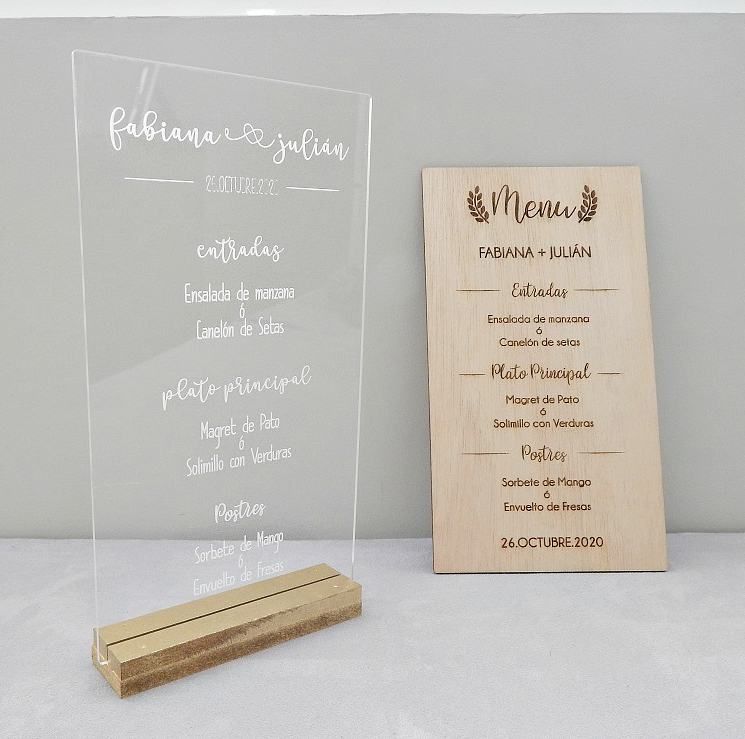 fabiana julián
26.OCTUBRE.2020
entradas
Ensalada de manzana
ó
Canelón de Setas
plato principal
Magret de Pato
ó
Solimillo con Verduras
Postres
Sorbete de Mango
ó
Envuelto de Fresas
Menu
FABIANA + JULIÁN
Entradas
Ensalada de manzana
ó
Canelón de setas
Plato Principal
Magret de Pato
ó
Solimillo con Verduras
Postres
Sorbete de Mango
ó
Envuelto de Fresas
26.OCTUBRE.2020